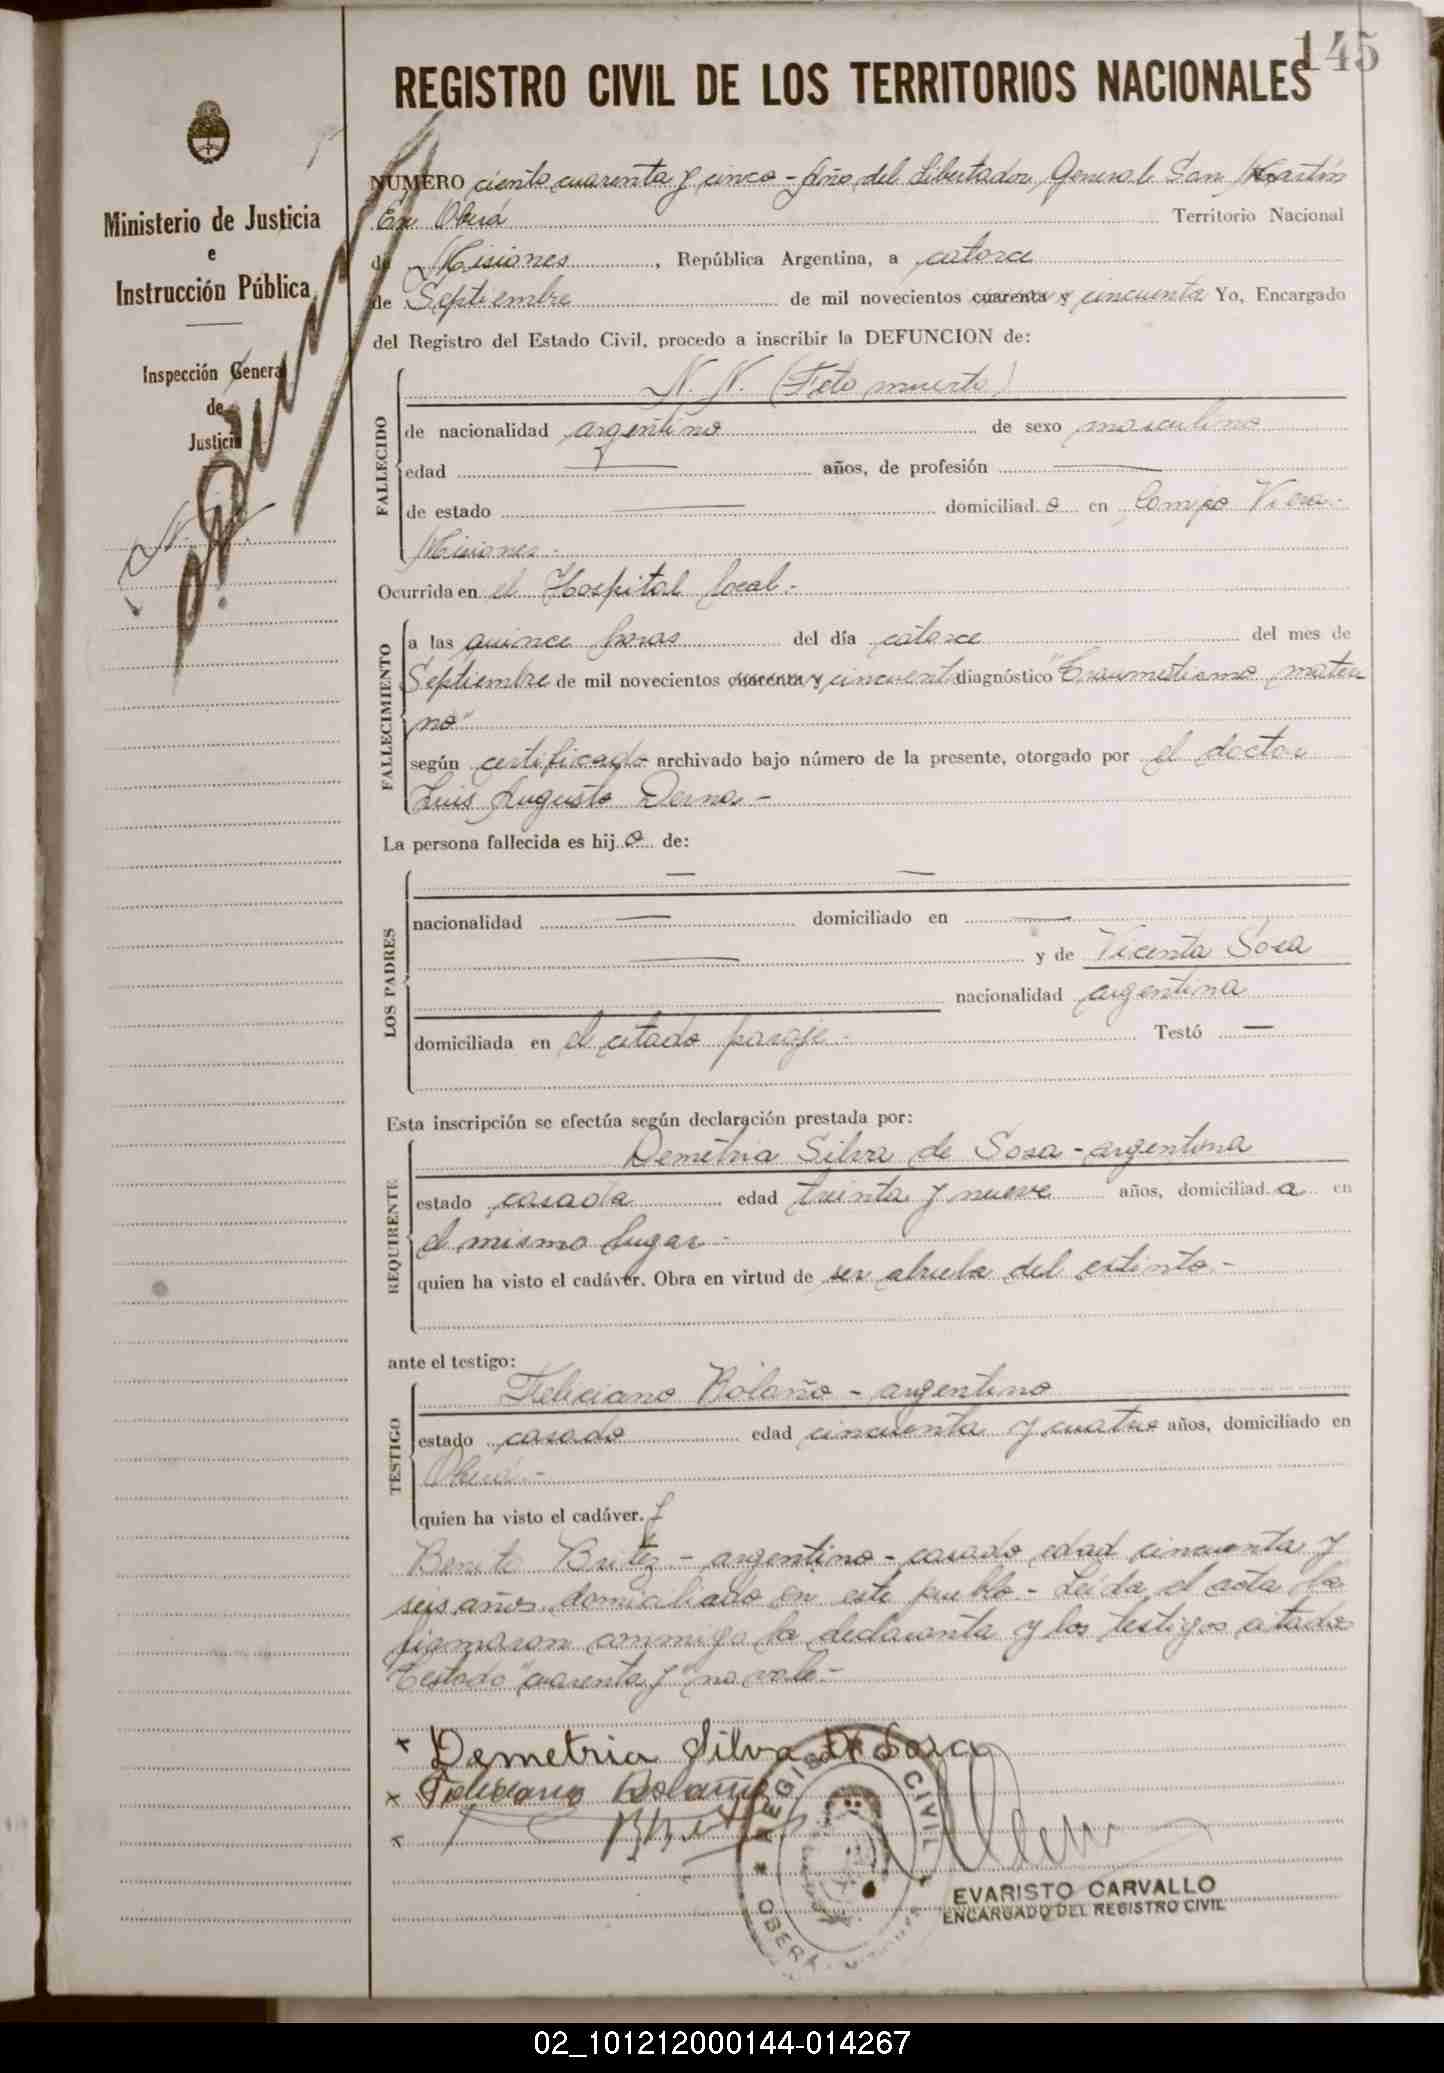 145
REGISTRO CIVIL DE LOS TERRITORIOS NACIONALES
Ministerio de Justicia
e
Instrucción Pública
Inspección General
de
Justicia
N. N.
NUMERO ciento cuarenta y cinco - Año del Libertador General San Martín
En Oberá Territorio Nacional
de Misiones, República Argentina, a catorce
de Septiembre de mil novecientos cuarenta y cincuenta Yo, Encargado
del Registro del Estado Civil, procedo a inscribir la DEFUNCION de:
FALLECIDO
N. N. (Feto muerto)
de nacionalidad argentino de sexo masculino
edad — años, de profesión —
de estado — domiciliad o en Campo Viera-
Misiones.-
Ocurrida en el Hospital local.-
FALLECIMIENTO
a las quince horas del día catorce del mes de
Septiembre de mil novecientos cuarenta y cincuenta diagnóstico "Traumatismo mater
no"
según certificado archivado bajo número de la presente, otorgado por el doctor
Luis Augusto Derna-
La persona fallecida es hij o de:
LOS PADRES
— —
nacionalidad — domiciliado en —
— y de Vicenta Sosa
nacionalidad argentina
domiciliada en el citado paraje.- Testó —
Esta inscripción se efectúa según declaración prestada por:
REQUIRENTE
Demetria Silva de Sosa - argentina
estado casada edad treinta y nueve años, domiciliad a en
el mismo lugar.-
quien ha visto el cadáver. Obra en virtud de ser abuela del extinto.-
ante el testigo:
TESTIGO
Feliciano Bolaño - argentino
estado casado edad cincuenta y cuatro años, domiciliado en
Oberá.-
quien ha visto el cadáver. y
Benito Britez - argentino - casado edad cincuenta y
seis años domiciliado en este pueblo.- Leída el acta la
firmaron conmigo la declaranta y los testigos citados
Testado "cuarenta y" no vale.-
x Demetria Silva de Sosa
x Feliciano Bolaño
x
REGISTRO CIVIL
OBERA
EVARISTO CARVALLO
ENCARGADO DEL REGISTRO CIVIL
02_101212000144-014267